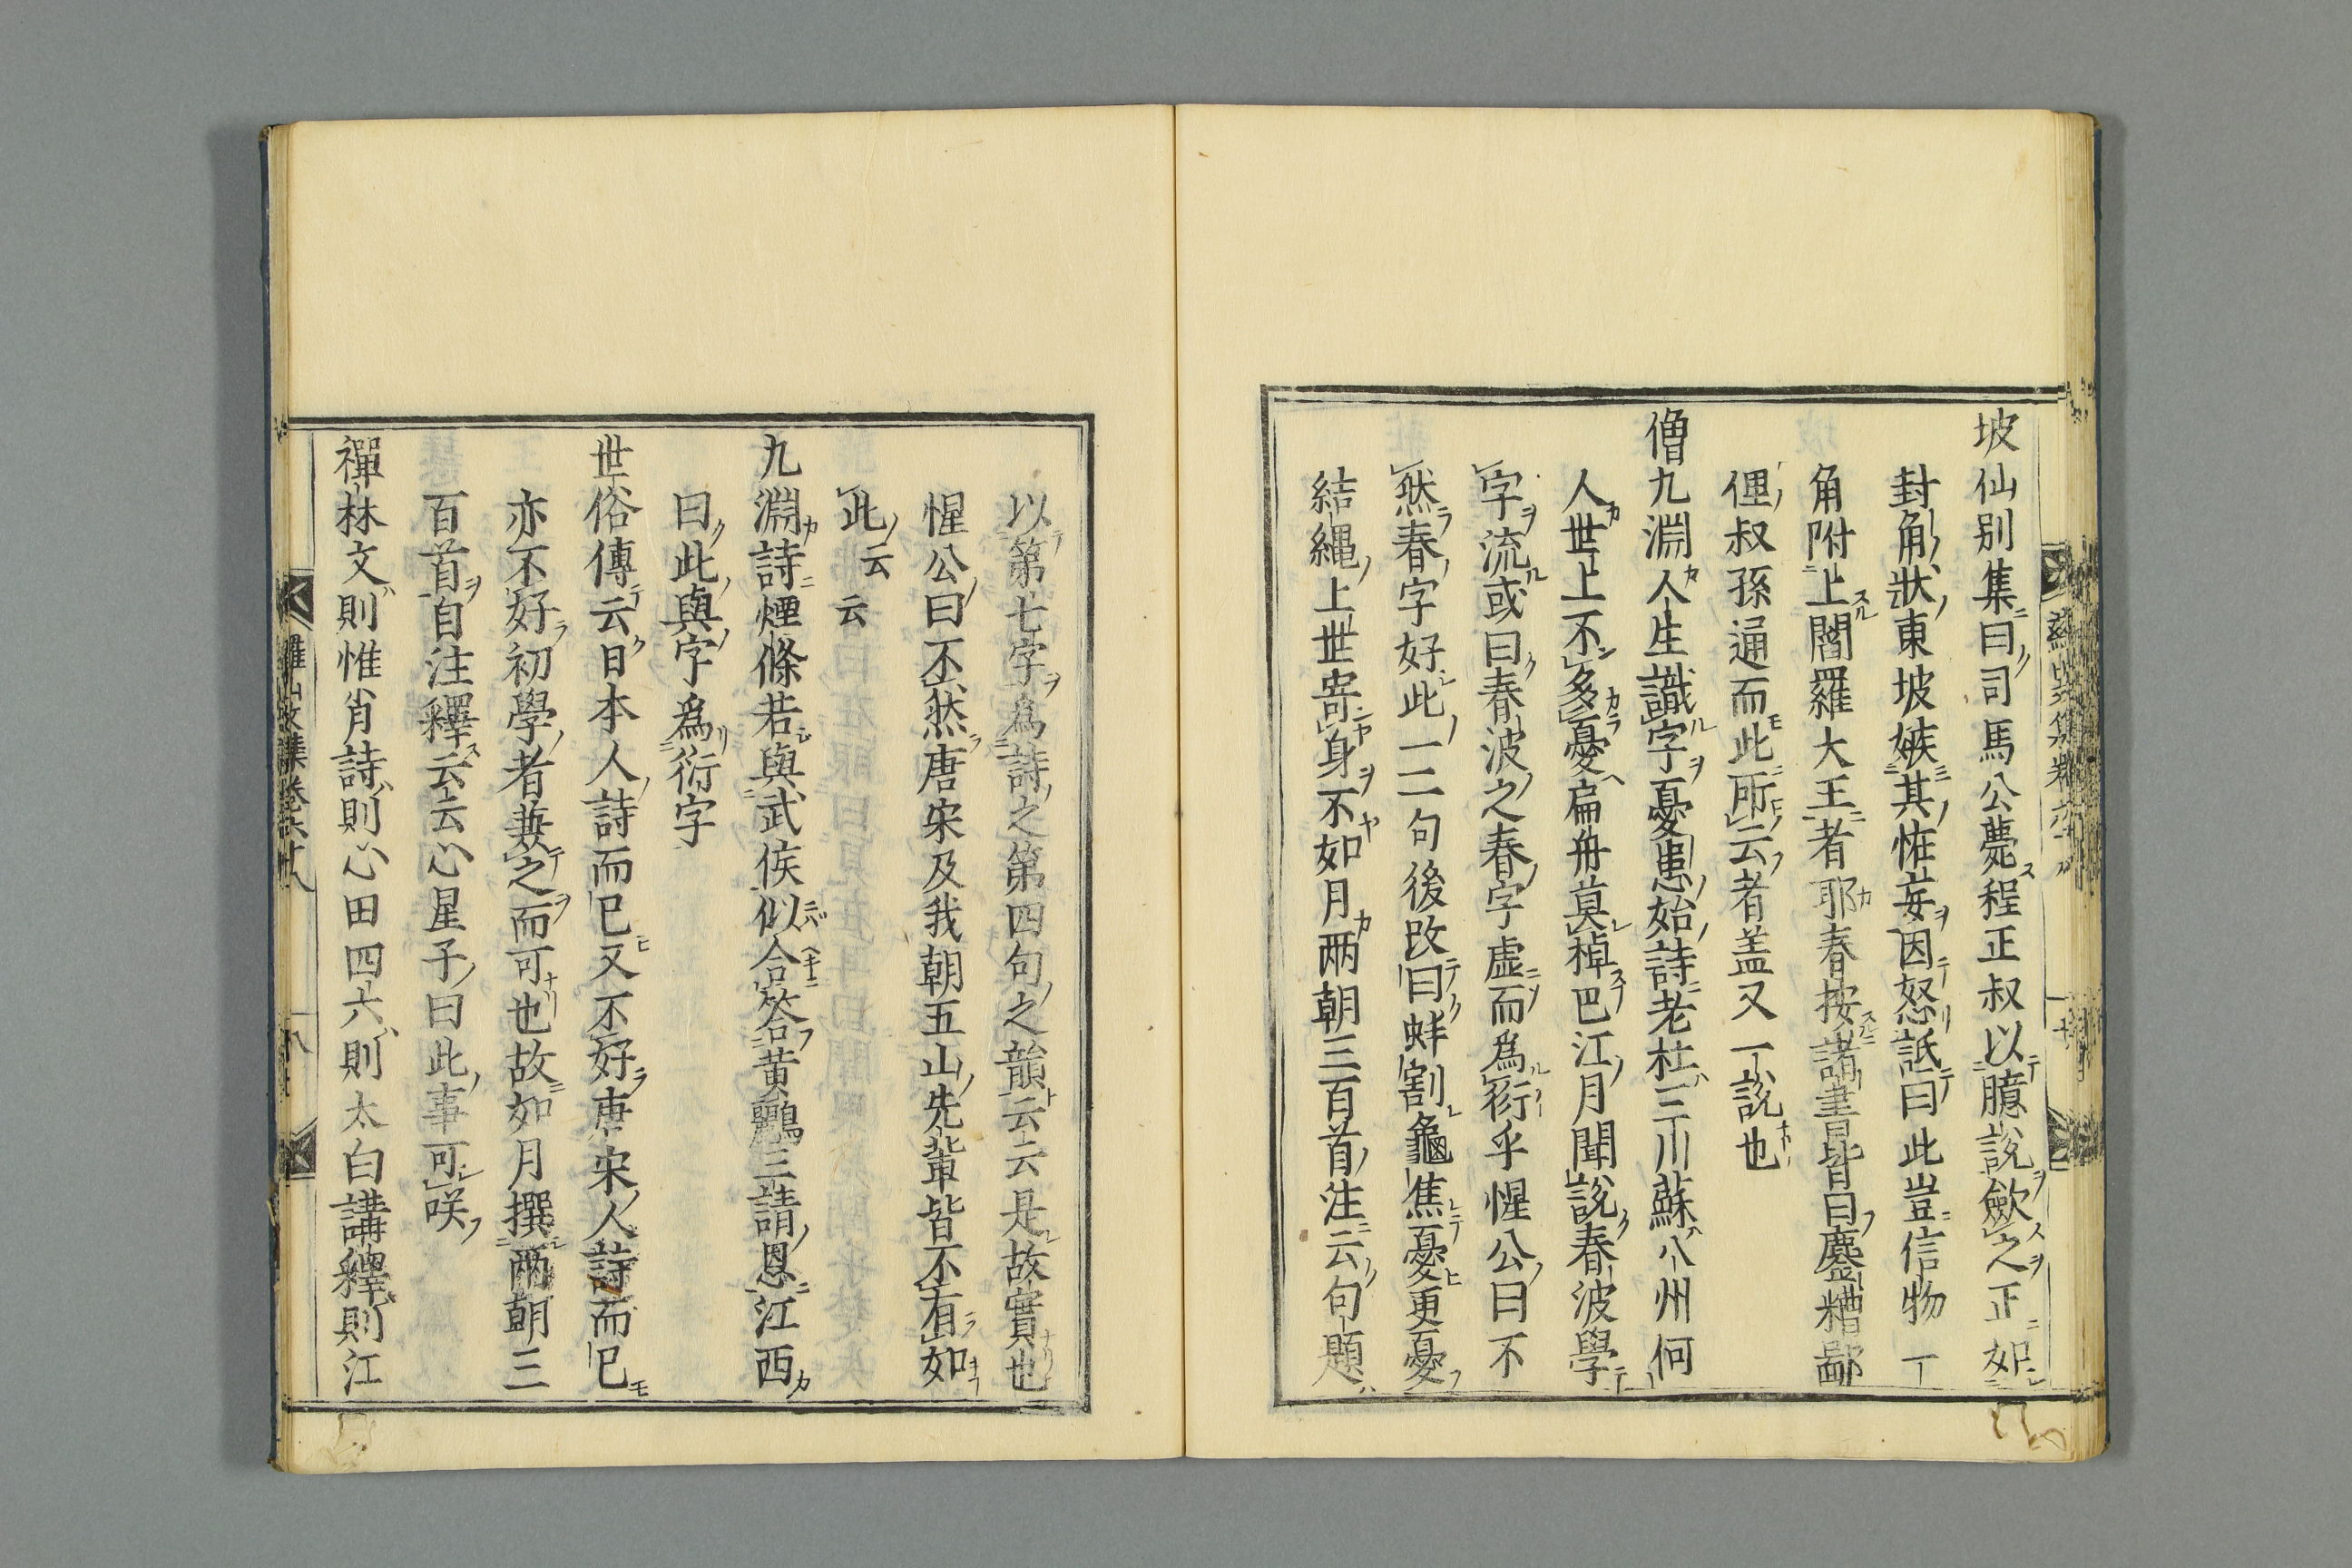 坡仙別集曰司馬公薨程正叔以臆說斂之正如
封角狀東坡嫉其恠妄因怒詆曰此豈信物一
角附上閻羅大王者耶春按諸書皆曰鏖糟鄙
俚叔孫通而此所云者盖又一說也
僧九淵人生識字憂患始詩老杜三川蘇八州何
人世上不多憂扁舟莫棹巴江月聞說春波學
字流或曰春波之春字虛而為衍乎惺公曰不
然春字好此一二句後改曰蚌割龜焦憂更憂
結繩上世寄身不如月两朝三百首注云句題
以第七字為詩之第四句之韻云云是故實也
惺公曰不然唐宋及我朝五山先輩皆不有如
此云云
九淵詩煙條若與武侯似合答黃鸝三請恩江西
曰此與字為衍字
世俗傳云日本人詩而已又不好唐宋人詩而已
亦不好初學者兼之而可也故如月撰两朝三
百首自注釋云云心星子曰此事可咲
禪林文則惟肖詩則心田四六則太白講釋則江
羅山文集卷六十八
八